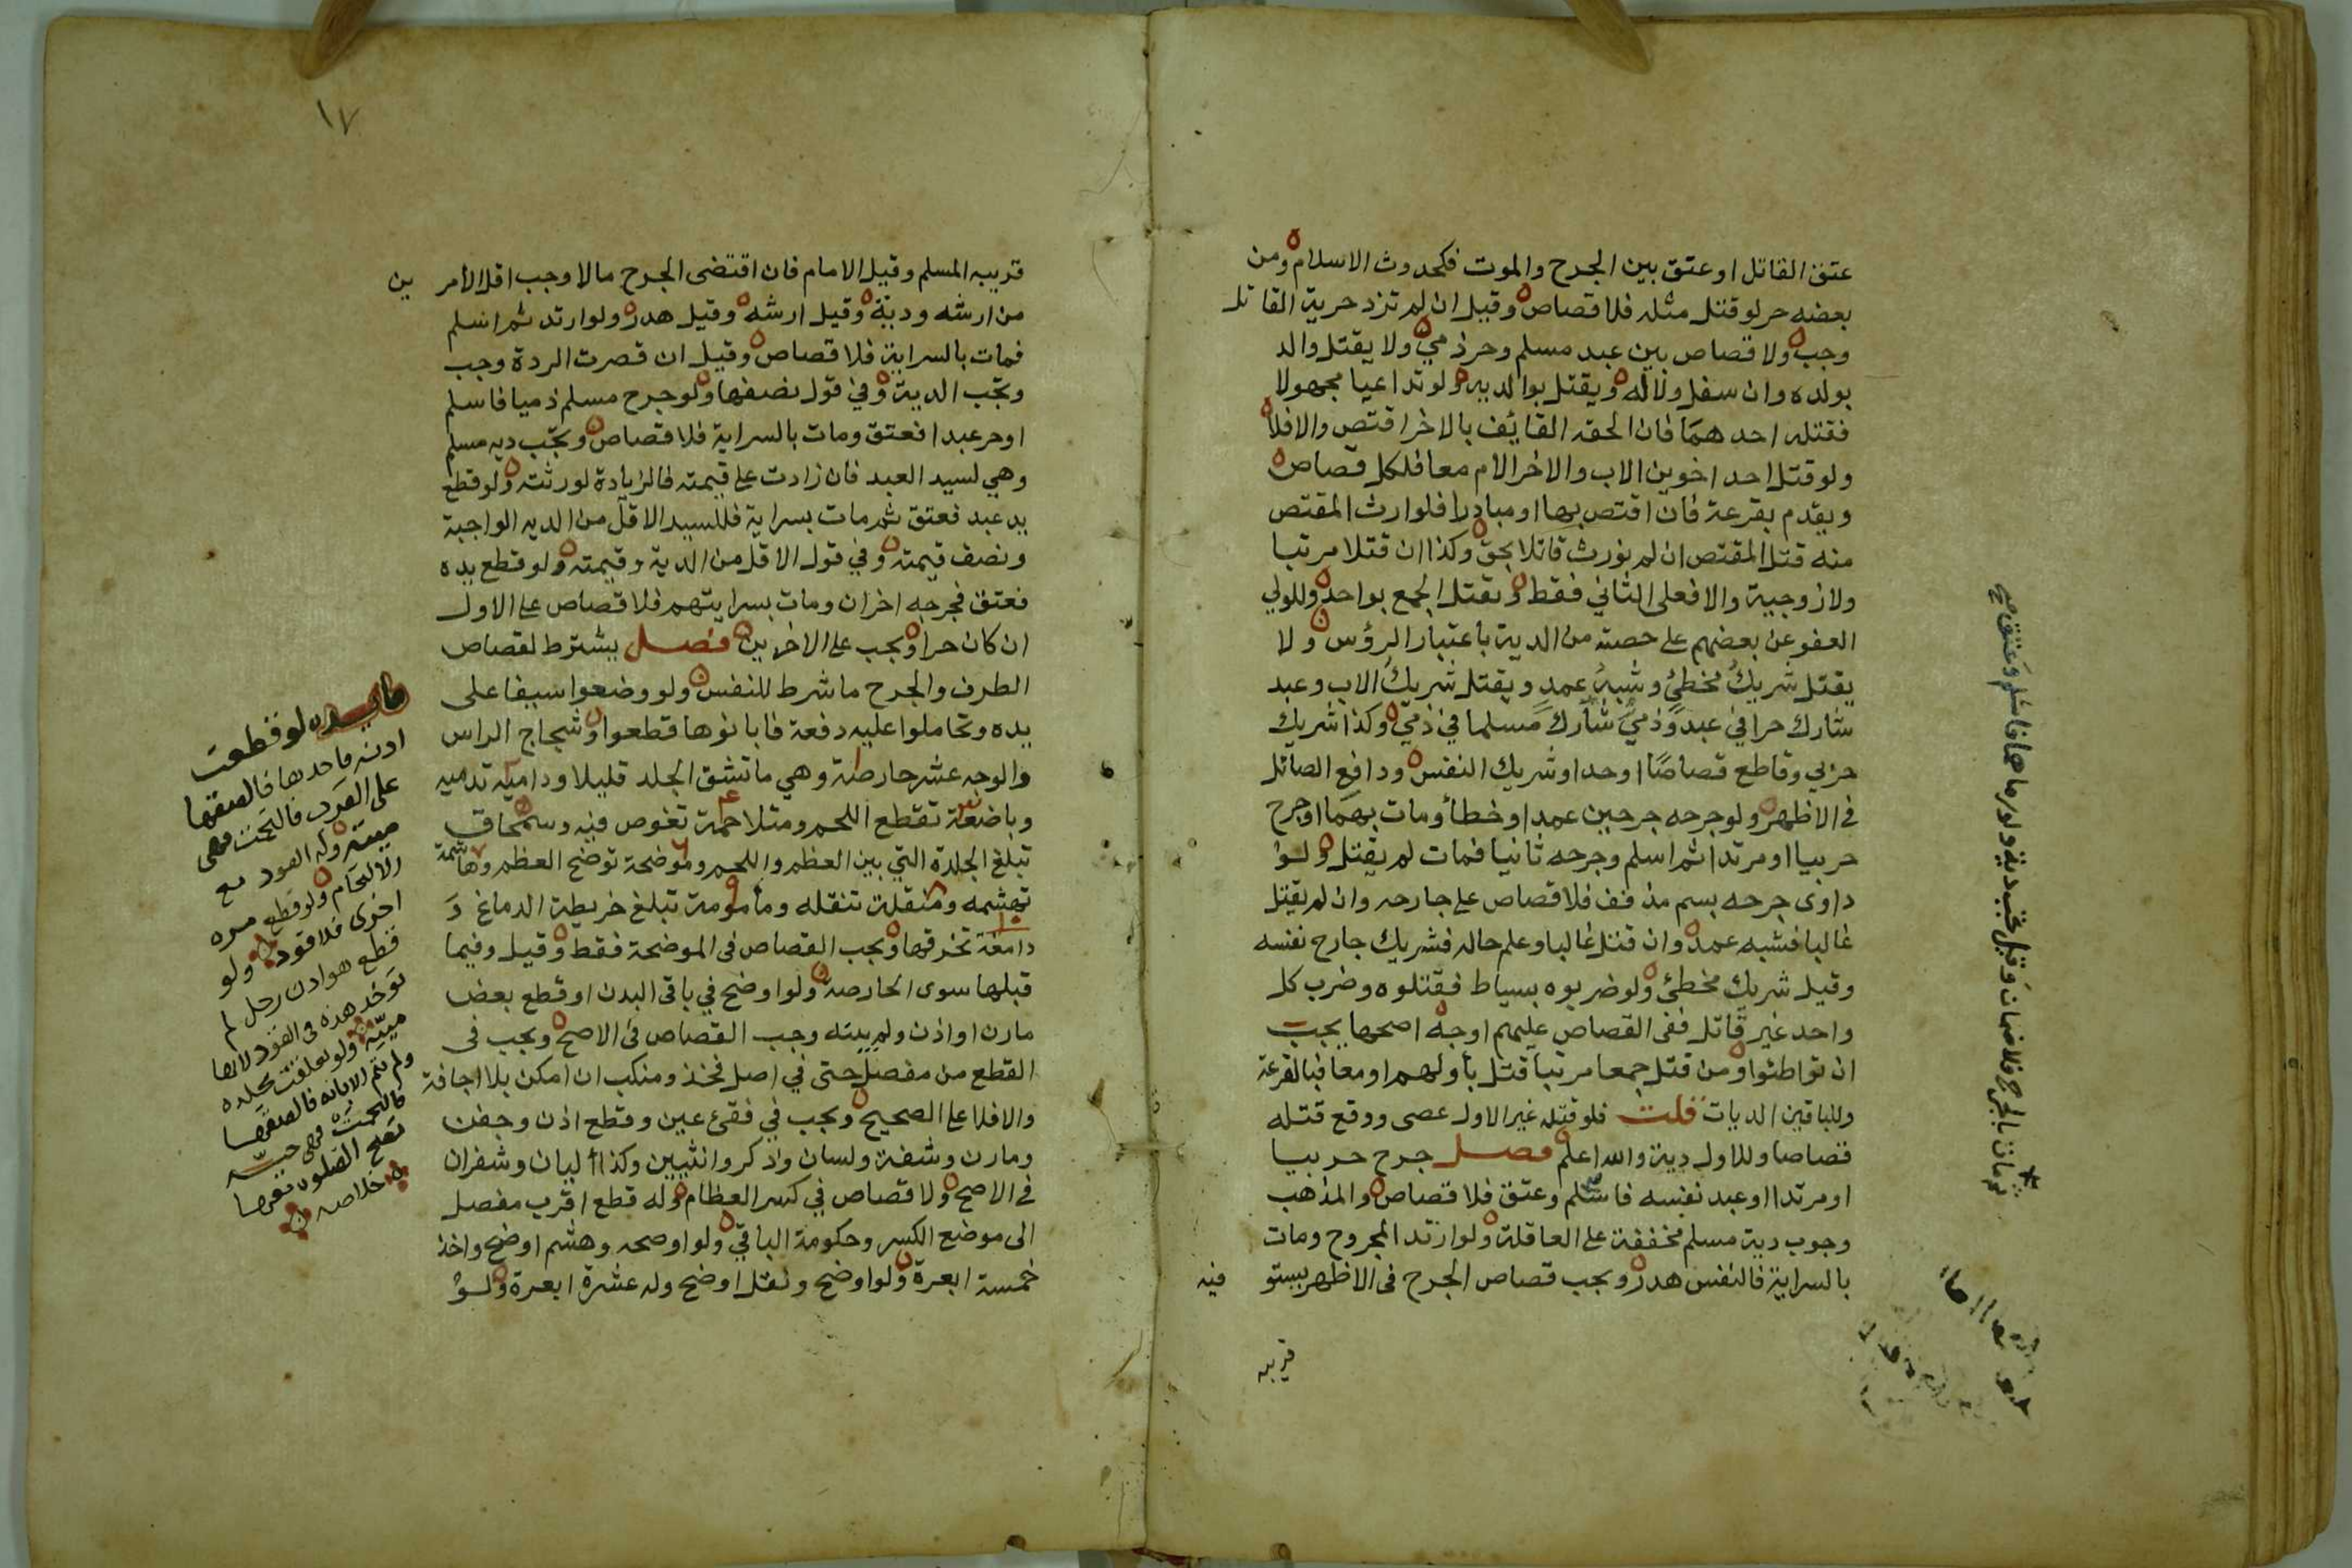 عتق القاتل او عتق بين الجرح والموت فكحدوث الاسلام ومن
بعضه حر لو قتل مثله فلا قصاص وقيل ان لم تزد حرية القاتل
وجب ولا قصاص بين عبد مسلم وحر ذمي ولا يقتل والد
بولده وان سفل ولا له ويقتل بوالديه ولو تداعيا مجهولا
فقتله احدهما فان الحقه القائف بالاخر اقتص والا فلا
ولو قتل احد اخوين الاب والاخر الام معا فلكل قصاص
ويقدم بقرعة فان اقتص بها او مبادرا فلوارث المقتص
منه قتل المقتص ان لم نورث قاتلا بحق وكذا ان قتلا مرتبا
ولا زوجية والا فعلى الثاني فقط ويقتل الجمع بواحد وللولي
العفو عن بعضهم على حصته من الدية باعتبار الرؤس ولا
يقتل شريك مخطئ وشبه عمد ويقتل شريك الاب وعبد
شارك حرا في عبد وذمي شارك مسلما في ذمي وكذا شريك
حربي وقاطع قصاصا او حدا وشريك النفس ودافع الصائل
في الاظهر ولو جرحه جرحين عمدا وخطأ ومات بهما او جرح
حربيا او مرتدا ثم اسلم وجرحه ثانيا فمات لم يقتل ولو
داوى جرحه بسم مذفف فلا قصاص على جارحه وان لم يقتل
غالبا فشبه عمد وان قتل غالبا وعلم حاله فشريك جارح نفسه
وقيل شريك مخطئ ولو ضربوه بسياط فقتلوه وضرب كل
واحد غير قاتل ففي القصاص عليهم اوجه اصحها يجب
ان تواطئوا ومن قتل جمعا مرتبا قتل بأولهم او معا فبالقرعة
وللباقين الديات قلت فلو قتله غير الاول عصى ووقع قتله
قصاصا وللاول دية والله اعلم فصل جرح حربيا
او مرتدا او عبد نفسه فاسلم وعتق فلا قصاص والمذهب
وجوب دية مسلم مخففة على العاقلة ولو ارتد المجروح ومات
بالسراية فالنفس هدر ويجب قصاص الجرح في الاظهر يستو
فيه
قريبه
ثم مات بالجرح فلا ضمان وقيل تجب دية ولو رماهما فاسلم وعتق
١٧
قريبه المسلم وقيل الامام فان اقتضى الجرح مالا وجب اقل الأمر
ين
من ارشه ودية وقيل ارشه وقيل هدر ولو ارتد ثم اسلم
فمات بالسراية فلا قصاص وقيل ان قصرت الردة وجب
وتجب الدية وفي قول نصفها ولو جرح مسلم ذميا فاسلم
او حر عبدا فعتق ومات بالسراية فلا قصاص وتجب دية مسلم
وهي لسيد العبد فان زادت على قيمته فالزيادة لورثته ولو قطع
يد عبد فعتق ثم مات بسراية فللسيد الاقل من الدية الواجبة
ونصف قيمته وفي قول الاقل من الدية وقيمته ولو قطع يده
فعتق فجرحه اخران ومات بسرايتهم فلا قصاص على الاول
ان كان حرا ويجب على الاخرين فصل يشترط لقصاص
الطرف والجرح ما شرط للنفس ولو وضعوا سيفا على
يده وتحاملوا عليه دفعة فابانوها قطعوا وشجاج الراس
والوجه عشر حارصة وهي ما تشق الجلد قليلا ودامية تدميه
وباضعة تقطع اللحم ومتلاحمة تغوص فيه وسمحاق
تبلغ الجلدة التي بين العظم واللحم وموضحة توضح العظم وهاشمة
تهشمه ومنقلة تنقله ومأمومة تبلغ خريطة الدماغ و
دامغة تخرقها ويجب القصاص في الموضحة فقط وقيل وفيما
قبلها سوى الحارصة ولو اوضح في باقي البدن او قطع بعض
مارن او اذن ولم يبنه وجب القصاص في الاصح ويجب في
القطع من مفصل حتى في اصل فخذ ومنكب ان امكن بلا اجافة
والا فلا على الصحيح ويجب في فقئ عين وقطع اذن وجفن
ومارن وشفة ولسان وذكر وانثيين وكذا أليان وشفران
في الاصح ولا قصاص في كسر العظام وله قطع اقرب مفصل
الى موضع الكسر وحكومة الباقي ولو اوضحه وهشم اوضح واخذ
خمسة ابعرة ولو اوضح ونقل اوضح وله عشرة ابعرة ولو
لو قطعت
اذنه فاحدها فالصقها
على الفور فالتحمت فهي
ميتة وله القود مع
الالتحام ولو قطع مرة
اخرى فلا قود ولو
قطع هو اذن رجل لم
توخذ هذه في القود لانها
ميتة ولو تعلقت بجلده
ولم تتم الابانة فالصقها
فالتحمت فهي حية
تصح الصلوة معها
خلاصه